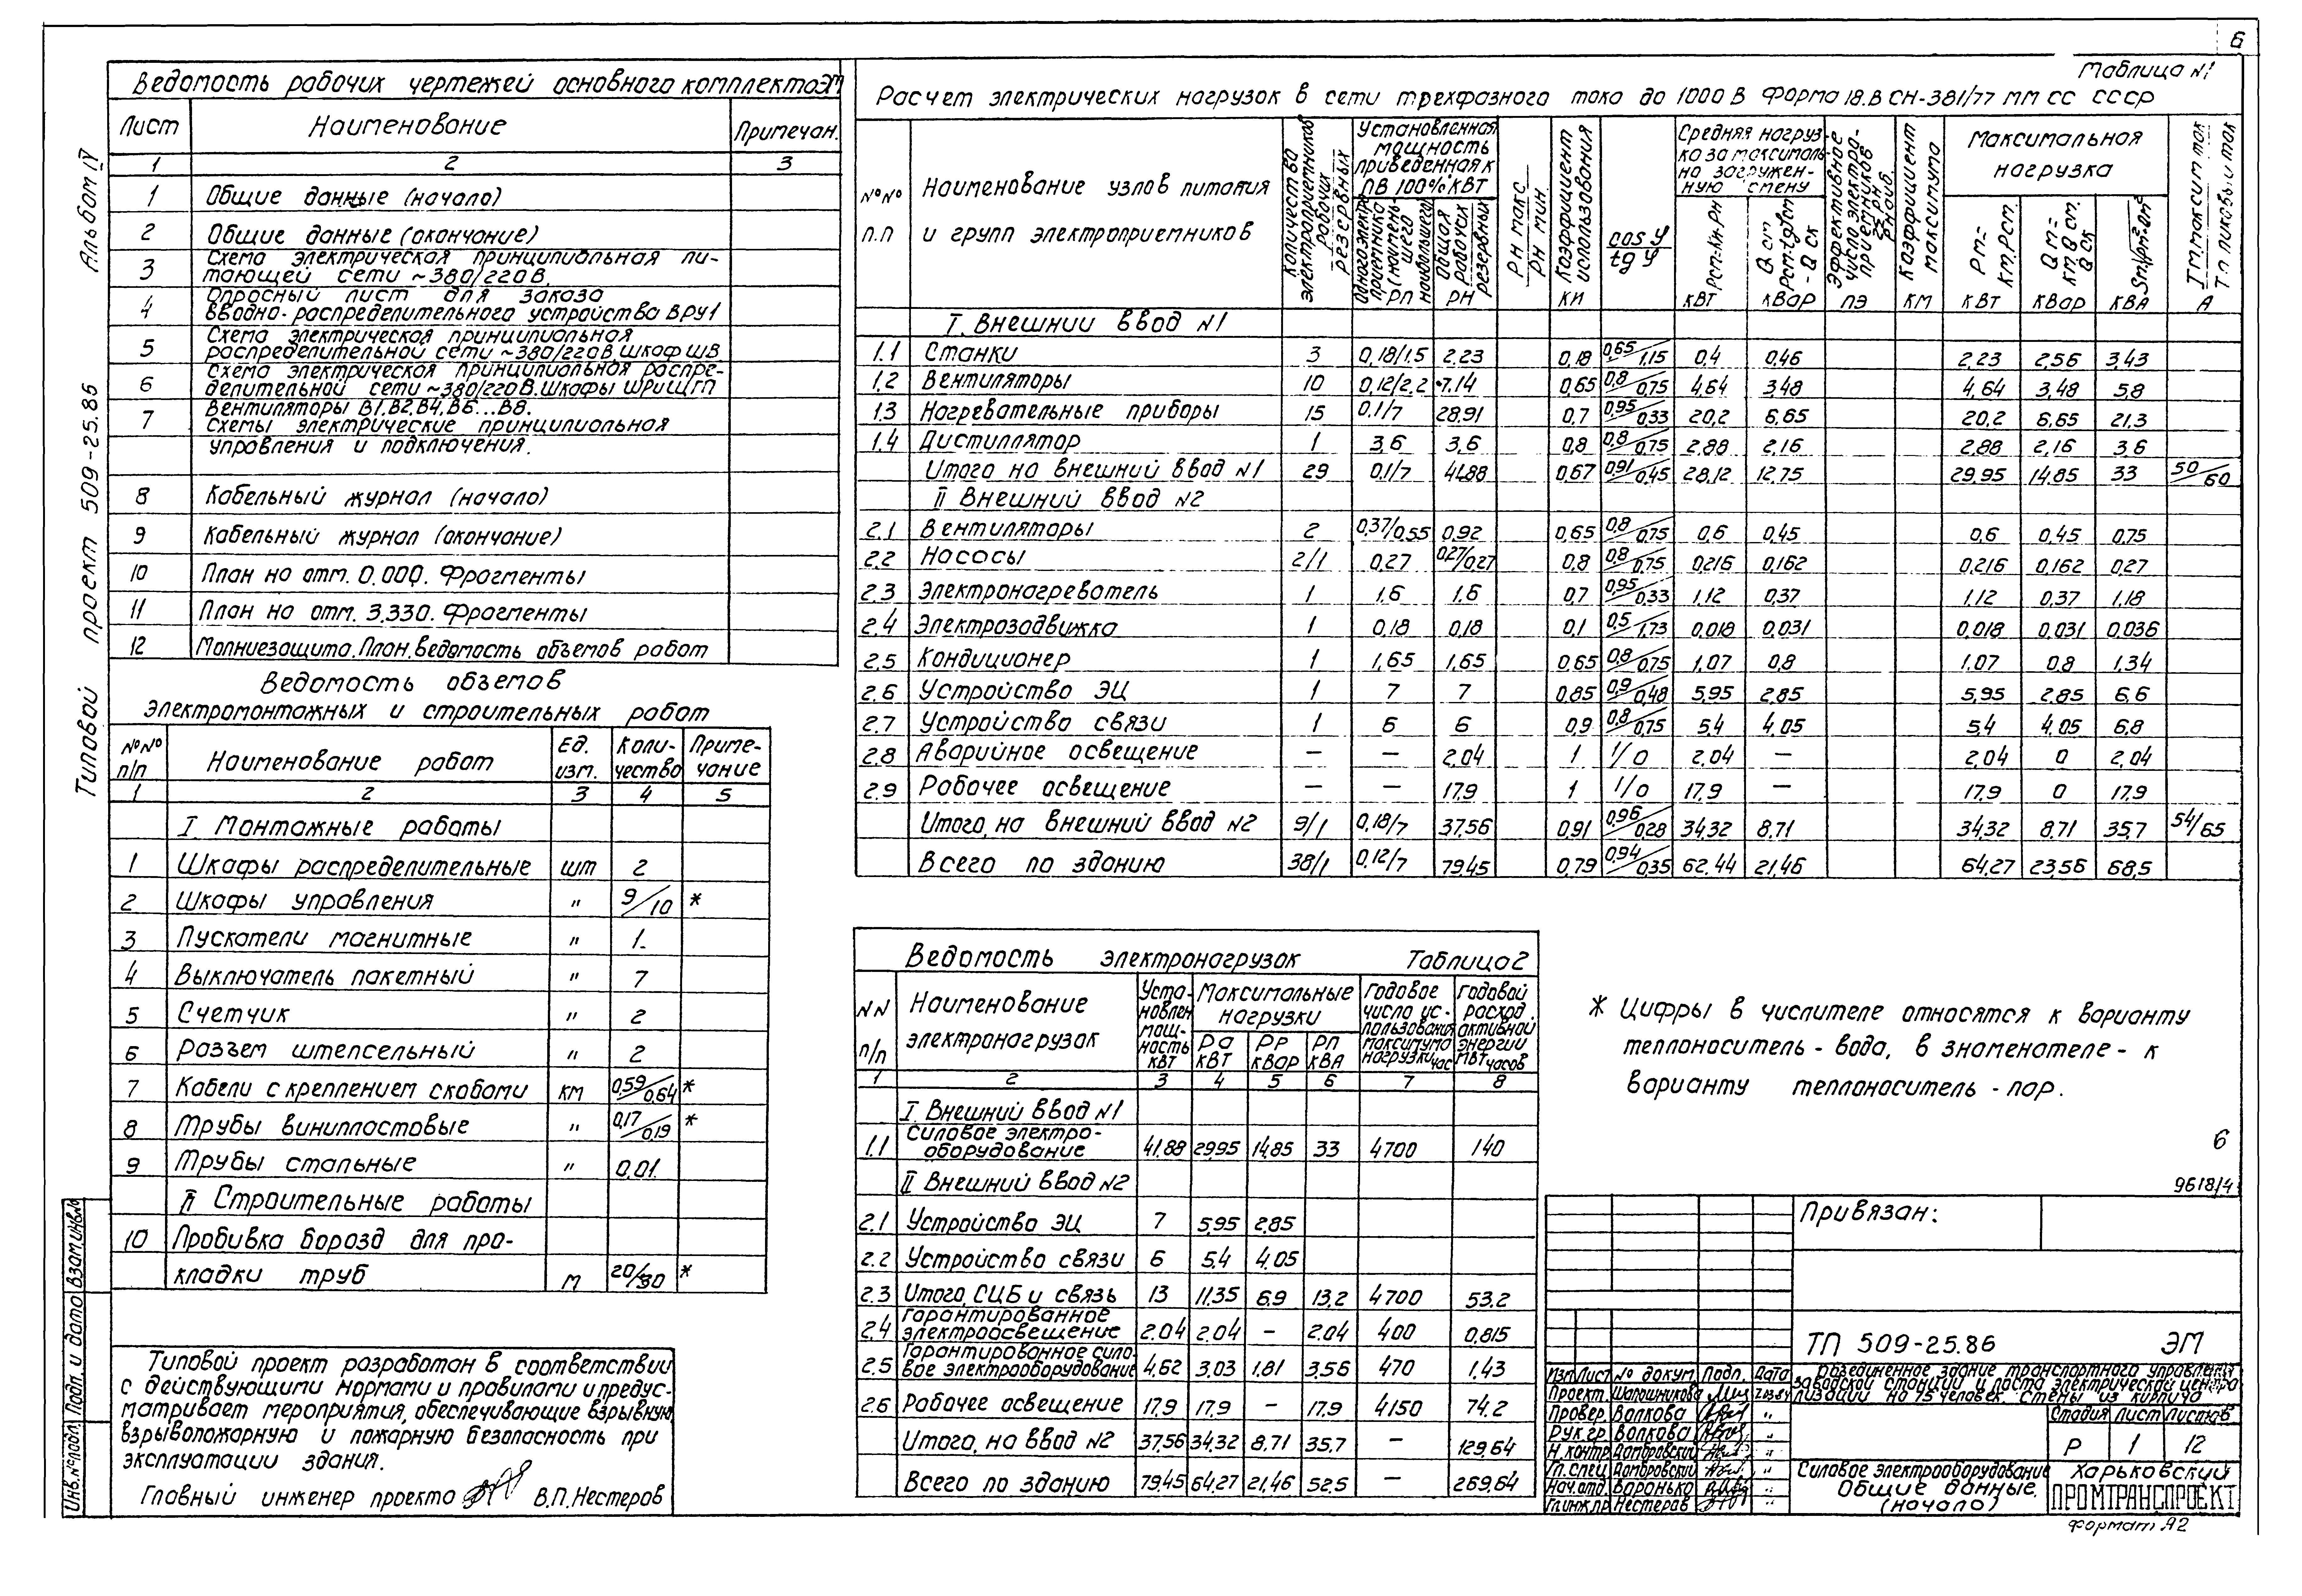 6
Альбом IV
Типовой проект 509-25.86
Ведомость рабочих чертежей основного комплекта ЭМ
Лист Наименование Примечан.
1 2 3
1 Общие данные (начало)
2 Общие данные (окончание)
3 Схема электрическая принципиальная пи-
тающей сети ~380/220В.
4 Опросный лист для заказа
вводно-распределительного устройства ВРУ1
5 Схема электрическая принципиальная
распределительной сети ~380/220В, шкаф ШВ
6 Схема электрическая принципиальная распре-
делительной сети ~380/220В. Шкафы
7 Вентиляторы В1, В2, В4, В6...В8.
Схемы электрические принципиальная
управления и подключения.
8 Кабельный журнал (начало)
9 Кабельный журнал (окончание)
10 План на отм. 0.000. Фрагменты
11 План на отм. 3.330. Фрагменты
12 Молниезащита. План. Ведомость объемов работ
Ведомость объемов
электромонтажных и строительных работ
№№ п/п Наименование работ Ед. изм. Коли-чество Приме-чание
1 2 3 4 5
I Монтажные работы
1 Шкафы распределительные шт 2
2 Шкафы управления " 9/10 *
3 Пускатели магнитные " 1.
4 Выключатель пакетный " 7
5 Счетчик " 2
6 Разъем штепсельный " 2
7 Кабели с креплением скобами км 0,59/0,64 *
8 Трубы винипластовые " 0,17/0,19 *
9 Трубы стальные " 0,01.
II Строительные работы
10 Пробивка борозд для про-
кладки труб м 20/30 *
Типовой проект разработан в соответствии
с действующими нормами и правилами и предус-
матривает мероприятия, обеспечивающие взрывную,
взрывопожарную и пожарную безопасность при
эксплуатации здания.
Главный инженер проекта В.П.Нестеров
Таблица №1
Расчет электрических нагрузок в сети трехфазного тока до 1000 В Форма 18. В СН-381/77 ММ СС СССР
№№ п.п Наименование узлов питания и групп электроприемников
Количество электроприемников рабочих резервных
Установленная мощность приведенная к ПВ 100% кВт
Одного электро приемника (наимень-шего наибольшего) РП
Общая рабочих резервных РН
РН макс РН мин.
Коэффициент использования КИ
cos φ / tg φ
Средняя нагруз-ка за максималь-но загружен-ную смену
Рсм=Ки·Рн кВт
Q см Рсм·tgφсм - Q ск кВар
Эффективное число электро-приемников ПЭ
Коэффициент максимума КМ
Максимальная нагрузка
Рм= км.Рсм. кВт
Qм= км.Qсм. Qск кВар
Sm√Рм²·Qм² кВА
Iм максим ток Iп пиковый ток А
I. Внешний ввод №1
1.1 Станки 3 0,18/1,5 2.23 0,18 0,65/1,15 0,4 0,46 2,23 2,56 3,43
1.2 Вентиляторы 10 0,12/2,2 7.14 0,65 0,8/0,75 4,64 3,48 4,64 3,48 5,8
1.3 Нагревательные приборы 15 0.1/7 28,91 0,7 0,95/0,33 20,2 6,65 20,2 6,65 21,3
1.4 Дистиллятор 1 3,6 3,6 0,8 0,8/0,75 2,88 2,16 2,88 2,16 3,6
Итого на внешний ввод №1 29 0,1/7 41.88 0,67 0,91/0,45 28,12 12,75 29,95 14,85 33 50/60
II Внешний ввод №2
2.1 Вентиляторы 2 0,37/0,55 0,92 0,65 0,8/0,75 0,6 0,45 0,6 0,45 0,75
2.2 Насосы 2/1 0,27 0,27/0,27 0,8 0,8/0,75 0,216 0,162 0,216 0,162 0,27
2.3 Электронагреватель 1 1,6 1,6 0,7 0,95/0,33 1,12 0,37 1,12 0,37 1,18
2.4 Электрозадвижка 1 0,18 0,18 0,1 0,5/1,73 0,018 0,031 0,018 0,031 0,036
2.5 Кондиционер 1 1,65 1,65 0,65 0,8/0,75 1,07 0,8 1,07 0,8 1,34
2.6 Устройство ЭЦ 1 7 7 0,85 0,9/0,48 5,95 2,85 5,95 2,85 6,6
2.7 Устройство связи 1 6 6 0,9 0,8/0,75 5,4 4,05 5,4 4,05 6,8
2.8 Аварийное освещение — — 2.04 1 1/0 2.04 — 2.04 0 2.04
2.9 Рабочее освещение — — 17,9 1 1/0 17,9 — 17,9 0 17,9
Итого, на внешний ввод №2 9/1 0,18/7 37,56 0,91 0,96/0,28 34,32 8,71 34,32 8,71 35,7 54/65
Всего по зданию 38/1 0,12/7 79.45 0,79 0,94/0,35 62.44 21,46 64,27 23,56 68,5
Ведомость электронагрузок Таблица 2
NN п/п Наименование электронагрузок Уста-новлен мощ-ность кВт Максимальные нагрузки Ра кВт Рр кВар Рп кВА Годовое число ис-пользования максимума нагрузки час Годовой расход активной энергии МВт часов
1 2 3 4 5 6 7 8
I. Внешний ввод №1
1.1 Силовое электро-
оборудование 41,88 29,95 14,85 33 4700 140
II Внешний ввод №2
2.1 Устройство ЭЦ 7 5,95 2,85
2.2 Устройство связи 6 5,4 4,05
2.3 Итого, СЦБ и связь 13 11,35 6,9 13,2 4700 53.2
2.4 Гарантированное
электроосвещение 2.04 2.04 — 2.04 400 0,815
2.5 Гарантированное сило-
вое электрооборудование 4,62 3,03 1,81 3,56 470 1.43
2.6 Рабочее освещение 17,9 17,9 — 17,9 4150 74,2
Итого, на ввод №2 37,56 34,32 8,71 35,7 — 129,64
Всего по зданию 79,45 64,27 21,46 52,5 — 269,64
* Цифры в числителе относятся к варианту
теплоноситель - вода, в знаменателе - к
варианту теплоноситель - пар.
6
9618/4
Привязан:
ТП 509-25.86 ЭМ
Изм Лист № докум Подп. Дата
Проект. Шапошникова
Провер. Волкова "
Рук.гр. Волкова "
Н.контр. Домбровский "
Гл.спец Домбровский "
Нач.отд. Воронько "
Гл.инж.пр Нестеров "
Объединенное здание транспортного управления
заводской станции и поста электрической центра
лизации на 75 человек. Стены из кирпича
Стадия Лист Листов
Р 1 12
Силовое электрооборудование
Общие данные.
(начало)
Харьковский
ПРОМТРАНСПРОЕКТ
Формат А2
Инв.№подл. Подп. и дата Взам.инв.№